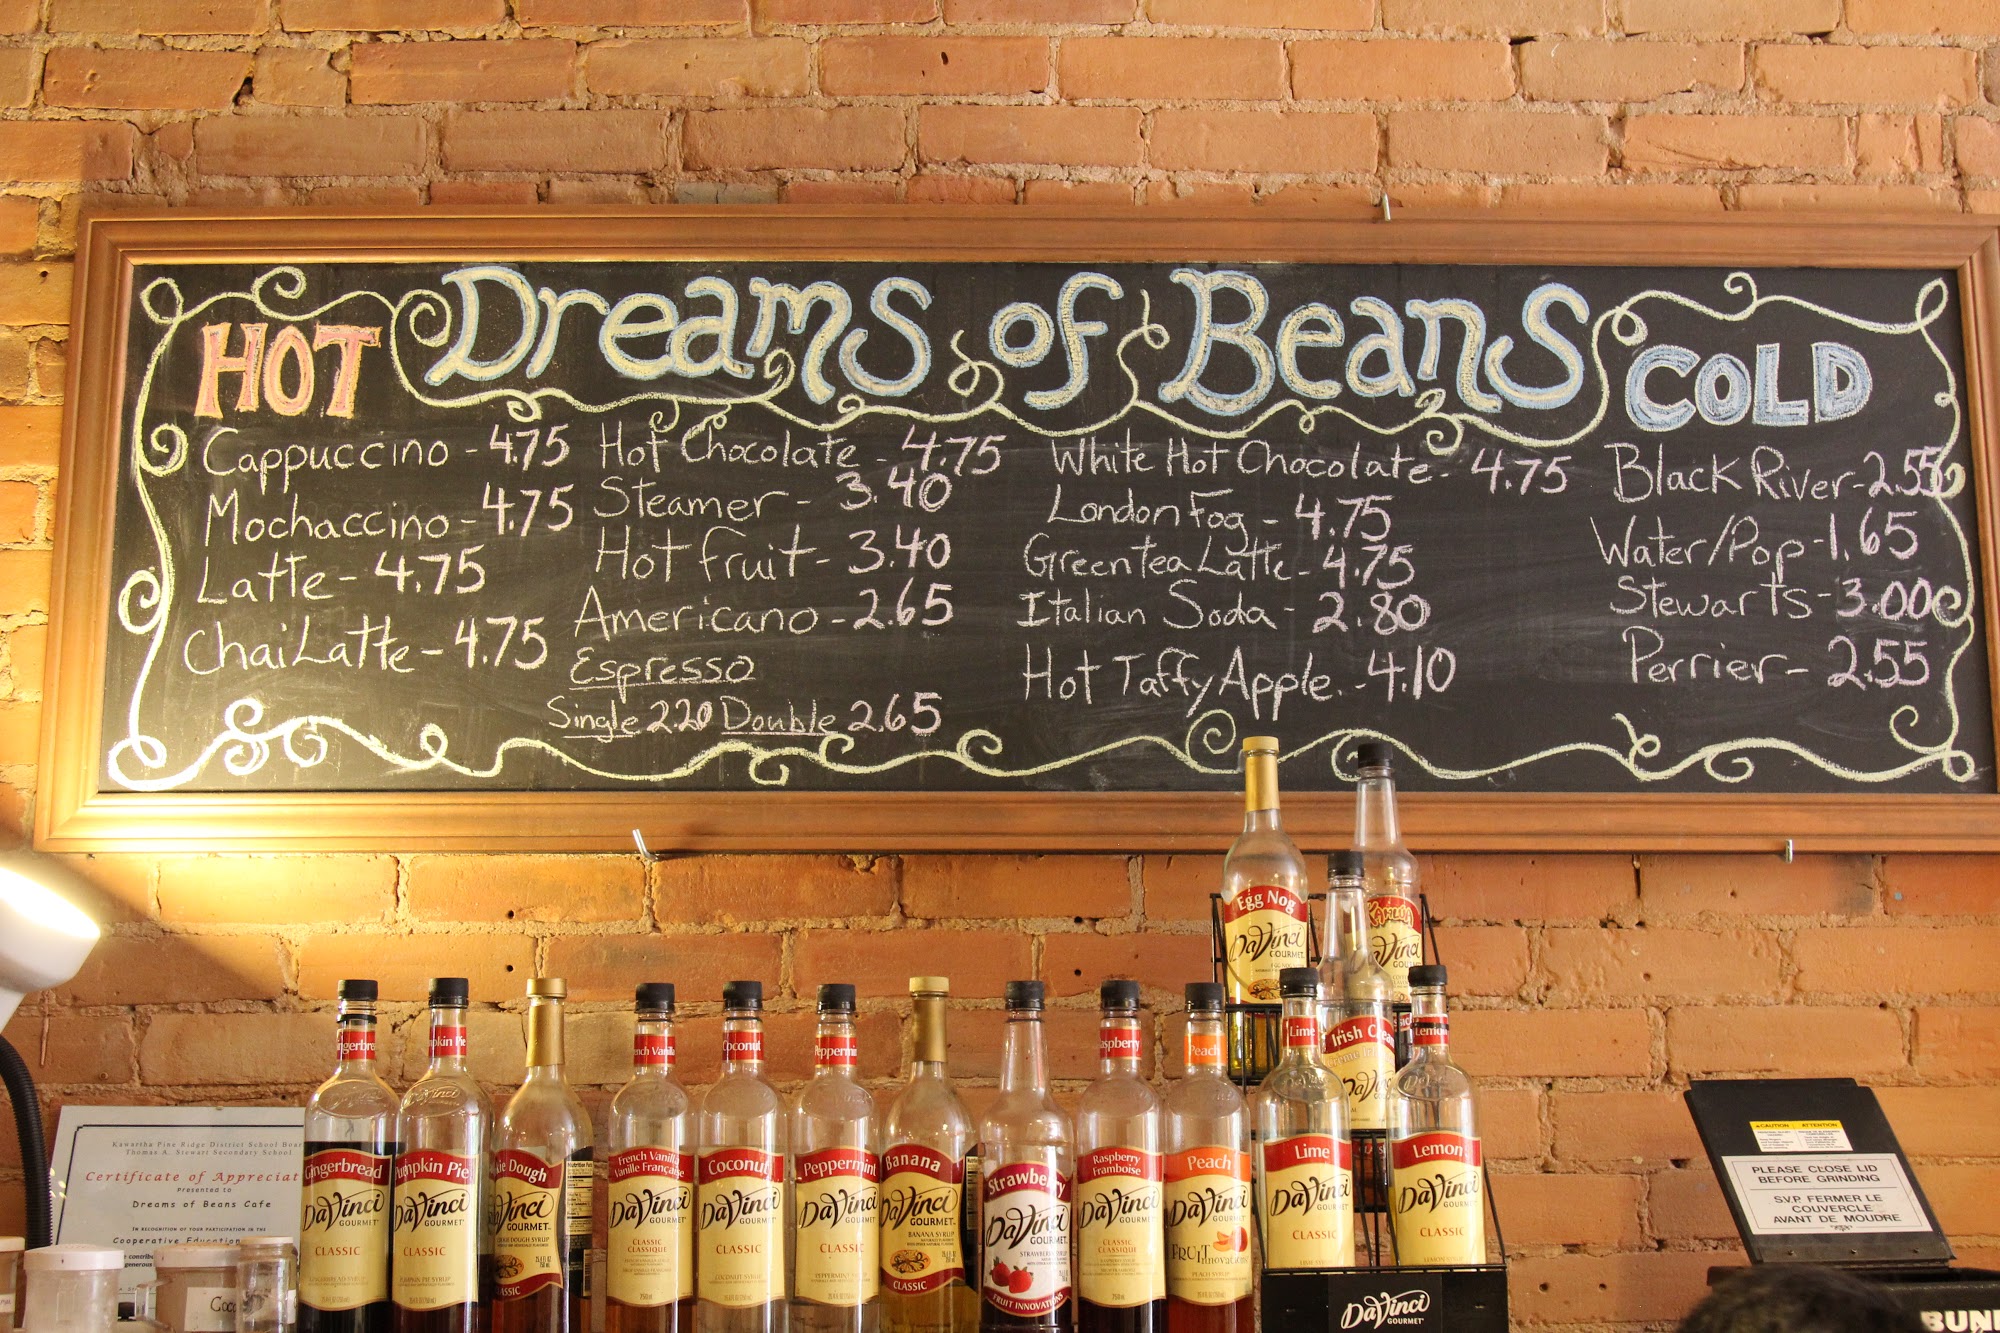 Dreams of Beans
HOT
Cappuccino - 4.75
Mochaccino - 4.75
Latte - 4.75
Chai Latte - 4.75
Hot Chocolate - 4.75
Steamer - 3.40
Hot fruit - 3.40
Americano - 2.65
Espresso
Single 2.20 Double 2.65
White Hot Chocolate - 4.75
London Fog - 4.75
Green tea Latte - 4.75
Italian Soda - 2.80
Hot Taffy Apple. - 4.10
COLD
Black River - 2.55
Water/Pop - 1.65
Stewarts - 3.00
Perrier - 2.55
Egg Nog
DaVinci
GOURMET
KAHLUA
DaVinci
Irish Cream
DaVinci
Lime
Lime
DaVinci
GOURMET
CLASSIC
Lemon
Lemon
DaVinci
GOURMET
CLASSIC
LEMON SYRUP
DaVinci
GOURMET
Gingerbread
DaVinci
GOURMET
CLASSIC
Pumpkin Pie
DaVinci
GOURMET
CLASSIC
PUMPKIN PIE SYRUP
Dough
DaVinci
GOURMET
DOUGH SYRUP
CLASSIC
French Vanilla
Vanille Française
DaVinci
GOURMET
CLASSIC
CLASSIQUE
750ml
Coconut
Coconut
DaVinci
GOURMET
CLASSIC
COCONUT SYRUP
Peppermint
Peppermint
DaVinci
GOURMET
CLASSIC
PEPPERMINT SYRUP
Banana
DaVinci
GOURMET
BANANA SYRUP
CLASSIC
Strawberry
DaVinci
GOURMET
STRAWBERRY SYRUP
FRUIT INNOVATIONS
Raspberry
Raspberry
Framboise
DaVinci
GOURMET
CLASSIC
CLASSIQUE
Peach
Peach
DaVinci
GOURMET
FRUIT Innovations
PEACH SYRUP
Kawartha Pine Ridge District School Boar
Thomas A. Stewart Secondary School
Certificate of Appreciat
Presented to
Dreams of Beans Cafe
IN RECOGNITION OF YOUR PARTICIPATION IN THE
Cooperative Education
Coco
CAUTION ATTENTION
PLEASE CLOSE LID
BEFORE GRINDING
S.V.P. FERMER LE
COUVERCLE
AVANT DE MOUDRE
BUNN